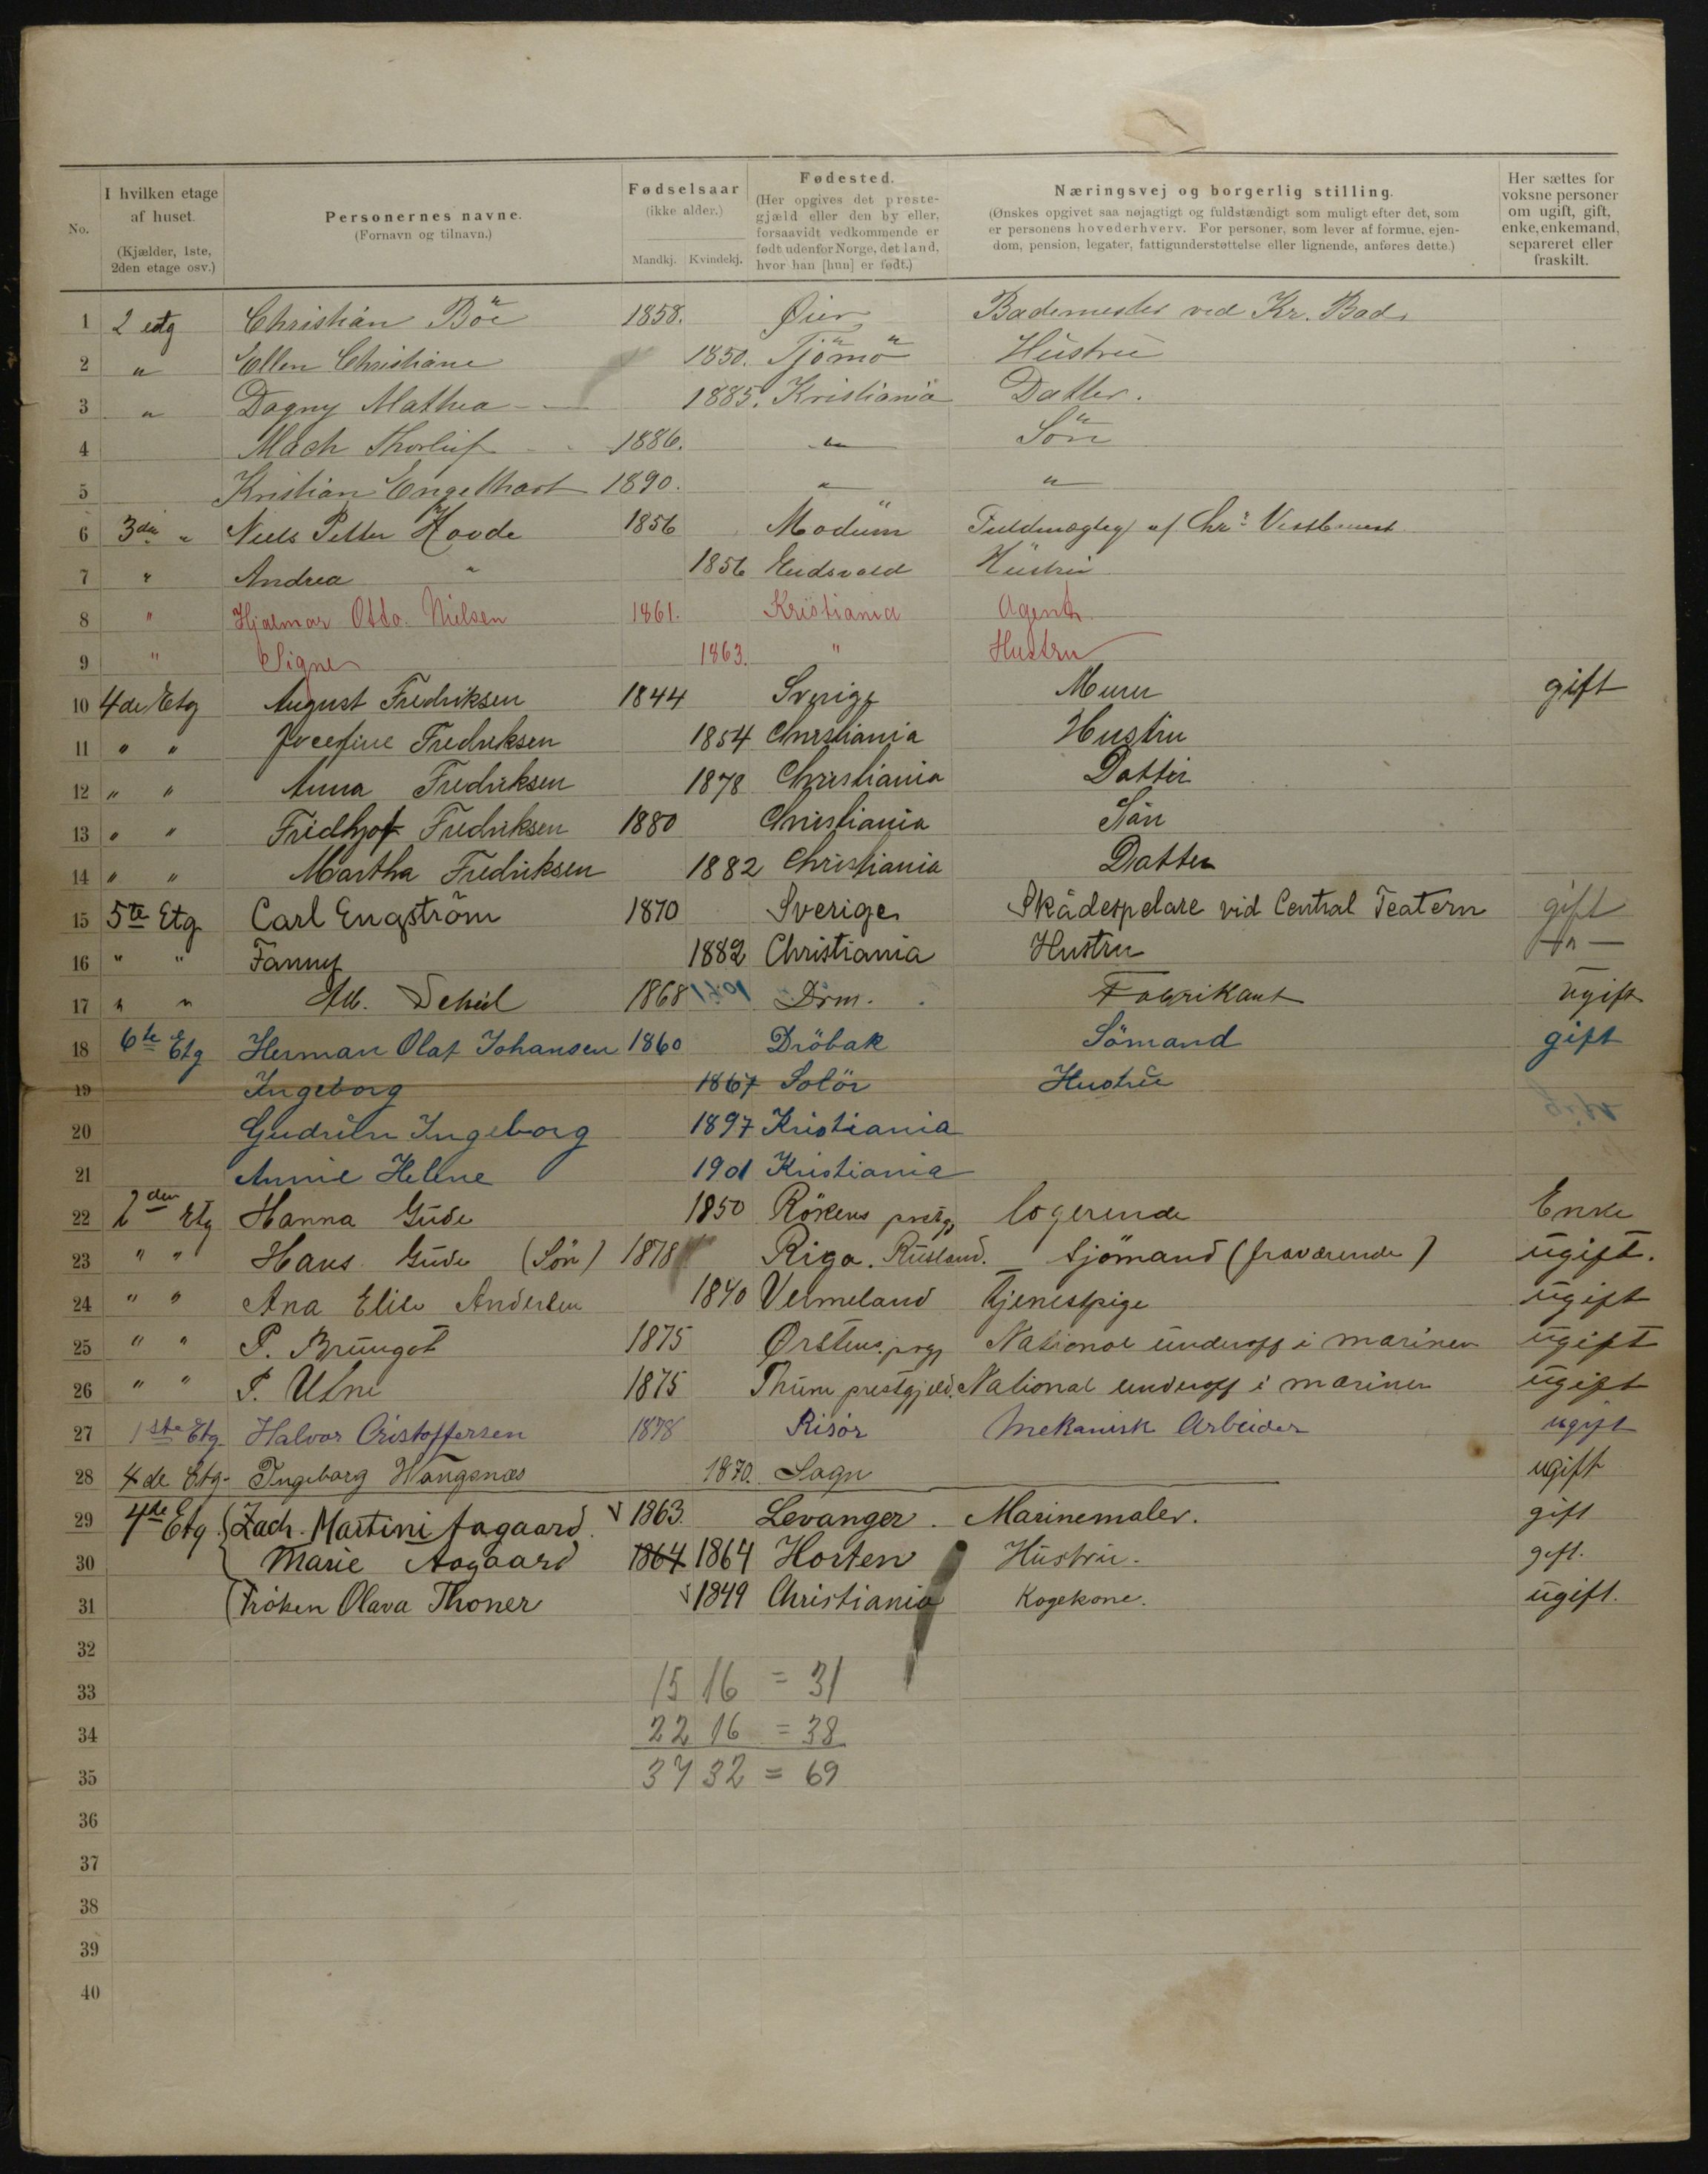 No.
I hvilken etage af huset.
(Kjælder, 1ste, 2den etage osv.)
Personernes navne.
(Fornavn og tilnavn.)
Fødselsaar
(ikke alder.)
Mandkj. Kvindekj.
Fødested.
(Her opgives det prestegjæld eller den by eller, forsaavidt vedkommende er født udenfor Norge, det land, hvor han [hun] er født.)
Næringsvej og borgerlig stilling.
(Ønskes opgivet saa nøjagtigt og fuldstændigt som muligt efter det, som er personens hovederhverv. For personer, som lever af formue, ejendom, pension, legater, fattigunderstøttelse eller lignende, anføres dette.)
Her sættes for voksne personer om ugift, gift, enke, enkemand, separeret eller fraskilt.
1 2 etg Christian Böe 1858. Øier Bademester ved Kr. Bad
2 " Ellen Christiane 1850. Tjömö Hustru
3 " Dagny Mathea 1885. Kristiania Datter.
4 Mach Thorleif 1886. " Sön
5 Kristian Engelhart 1890. " "
6 3die " Niels Petter Hovde 1856 Modum Fuldmægtig af Chr.
7 " Andrea " 1856 Eidsvold Hustru
8 " Hjalmar Otto Nielsen 1861. Kristiania Agent
9 " Signe 1863. " Hustru
10 4de Etg August Fredriksen 1844 Sverige Murer gift
11 " " Josefine Fredriksen 1854 Christiania Hustru
12 " " Anna Fredriksen 1878 Christiania Datter
13 " " Fridhjof Fredriksen 1880 Christiania Sön
14 " " Martha Fredriksen 1882 Christiania Datter
15 5te Etg Carl Engström 1870 Sverige Skådespelare vid Central Teatern gift
16 " " Fanny 1882 Christiania Hustru — " —
17 " " 1868 Drm. Fabrikant ugift
18 6te Etg Herman Olaf Johansen 1860 Dröbak Sömand gift
19 Ingeborg 1867 Solör Hustru
20 Gudrun Ingeborg 1897 Kristiania
21 Annie Helene 1901 Kristiania
22 2den Etg Hanna Gude 1850 Rökens prstg. logerende Enke
23 " " Hans Gude (Sön) 1878 Riga. Rusland. Sjömand (fraværende) ugift.
24 " " Ana Elise Andersen 1840 Vermeland tjenestpige ugift
25 " " P. Brungot 1875 Ørstens prgj National underoff i marinen ugift
26 " " P. Utne 1875 prestgjeld. National underoff i marinen ugift
27 1ste Etg. Halvor Cristoffersen 1878 Risör Mekanisk Arbeider ugift
28 4de Etg. Ingeborg Hangsnæs 1870. Sogn ugift
29 4de Etg. Zach. Martini Aagaard. 1863. Levanger. Marinemaler. gift
30 Marie Aagaard 1864 1864 Horten Hustru. gift.
31 Fröken Olava Thoner 1849 Christiania Kogekone. ugift.
32
33 15 16 = 31
34 22 16 = 38
35 37 32 = 69
36
37
38
39
40